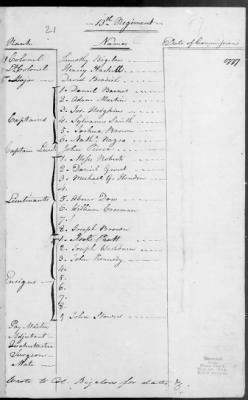 21
15th Regiment
Rank Names Date of Commissions
Colonel Timothy Bigelow 1777
Lt Colonel Henry Haskell
Major David Bradish
Captains
1 Daniel Barnes
2 Adam Martin
3 Jos. Hodgkins
4 Sylvanus Smith
5 Joshua Brown
6
Captain Lieut John Peirce
Lieutenants
1 Moses Roberts
2 Daniel
3 Michael G. Houdin
4
5 Abner Dow
6 William
7
8 Joseph Brown
Ensigns
1 Noah Pratt
2 Joseph
3 John Kennedy
4
5
6
7
8
9 John
Pay Master
Adjutant
Quartermaster
Surgeon
Mate
Wrote to Col. Bigelow for dates &c